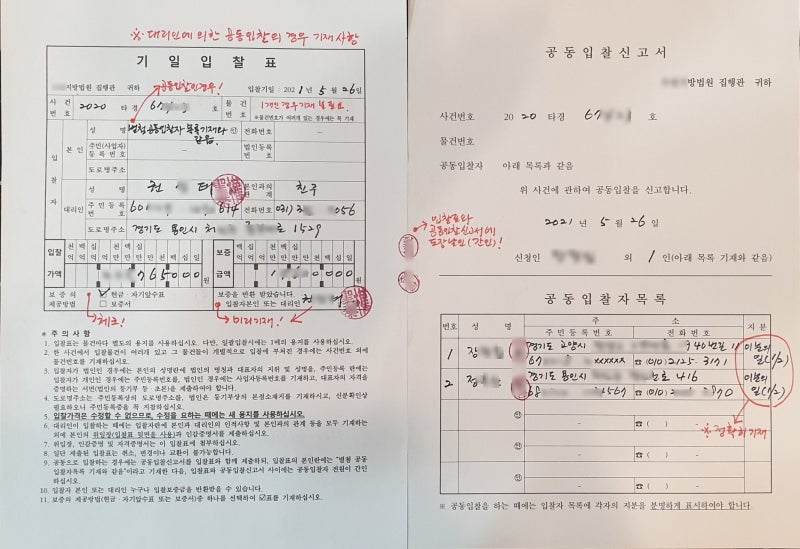 ※ 대리인에 의한 공동입찰의 경우 기재사항
기 일 입 찰 표
지방법원 집행관 귀하
입찰기일 : 2021년 5월 26일
공동입찰인경우!
사 건 번 호
2020 타경 67 호
물 건 번 호
1개인 경우 기재 불필요.
※물건번호가 여러개 있는 경우에는 꼭 기재
입 찰 자
본 인
성 명
별첨 공동입찰자 목록 기재와 같음. ㊞
전화번호 -
주민(사업자)등록번호 -
법인등록번호 -
도로명주소 -
대리인
성 명
권 태
본인과의 관계
친구
주민등록번호
601 614
전화번호
031) 3 056
도로명주소
경기도 용인시 처 1529
입찰가격
천억 백억 십억 억 천만 백만 십만 만 천 백 십 일
765000원
보증금액
백억 십억 억 천만 백만 십만 만 천 백 십 일
0000원
보증의 제공방법
☑ 현금ㆍ자기앞수표
□ 보증서
보증을 반환 받았습니다.
입찰자본인 또는 대리인 권
체크!
미리기재!
※ 주 의 사 항
1. 입찰표는 물건마다 별도의 용지를 사용하십시오. 다만, 일괄입찰시에는 1매의 용지를 사용하십시오.
2. 한 사건에서 입찰물건이 여러개 있고 그 물건들이 개별적으로 입찰에 부쳐진 경우에는 사건번호 외에
물건번호를 기재하십시오.
3. 입찰자가 법인인 경우에는 본인의 성명란에 법인의 명칭과 대표자의 지위 및 성명을, 주민등록 란에는
입찰자가 개인인 경우에는 주민등록번호를, 법인인 경우에는 사업자등록번호를 기재하고, 대표자의 자격을
증명하는 서면(법인의 등기부 등ㆍ초본)을 제출하여야 합니다.
4. 도로명주소는 주민등록상의 도로명주소를, 법인은 등기부상의 본점소재지를 기재하시고, 신분확인상
필요하오니 주민등록증을 꼭 지참하십시오.
5. 입찰가격은 수정할 수 없으므로, 수정을 요하는 때에는 새 용지를 사용하십시오.
6. 대리인이 입찰하는 때에는 입찰자란에 본인과 대리인의 인적사항 및 본인과의 관계 등을 모두 기재하는
외에 본인의 위임장(입찰표 뒷면을 사용)과 인감증명서를 제출하십시오.
7. 위임장, 인감증명 및 자격증명서는 이 입찰표에 첨부하십시오.
8. 일단 제출된 입찰표는 취소, 변경이나 교환이 불가능합니다.
9. 공동으로 입찰하는 경우에는 공동입찰신고서를 입찰표와 함께 제출하되, 입찰표의 본인란에는 "별첨 공동
입찰자목록 기재와 같음"이라고 기재한 다음, 입찰표와 공동입찰신고서 사이에는 공동입찰자 전원이 간인
하십시오.
10. 입찰자 본인 또는 대리인 누구나 입찰보증금을 반환받을 수 있습니다.
11. 보증의 제공방법(현금ㆍ자기앞수표 또는 보증서)중 하나를 선택하여 ☑표를 기재하십시오.
입찰표와
공동입찰신고서에
도장날인(간인)!
공 동 입 찰 신 고 서
방법원 집행관 귀하
사건번호 2020 타경 67 호
물건번호
공동입찰자 아래 목록과 같음
위 사건에 관하여 공동입찰을 신고합니다.
2021 년 5 월 26 일
신청인 외 1 인(아래 목록 기재와 같음)
공 동 입 찰 자 목 록
번호
성 명
주 소
주민등록번호
전화번호
지 분
1
장
경기도 고양시 340번길 11
67 xxxxxx
☎(010) 2125-3171
이분의 일(1/2)
2
정
경기도 용인시 번호 416
68 4567
☎(010) 70
이분의 일(1/2)
㊞ - ☎( ) -
㊞ - ☎( ) -
㊞ - ☎( ) -
㊞ - ☎( ) -
※ 정확히 기재
※ 공동입찰을 하는 때에는 입찰자 목록에 각자의 지분을 분명하게 표시하여야 합니다.